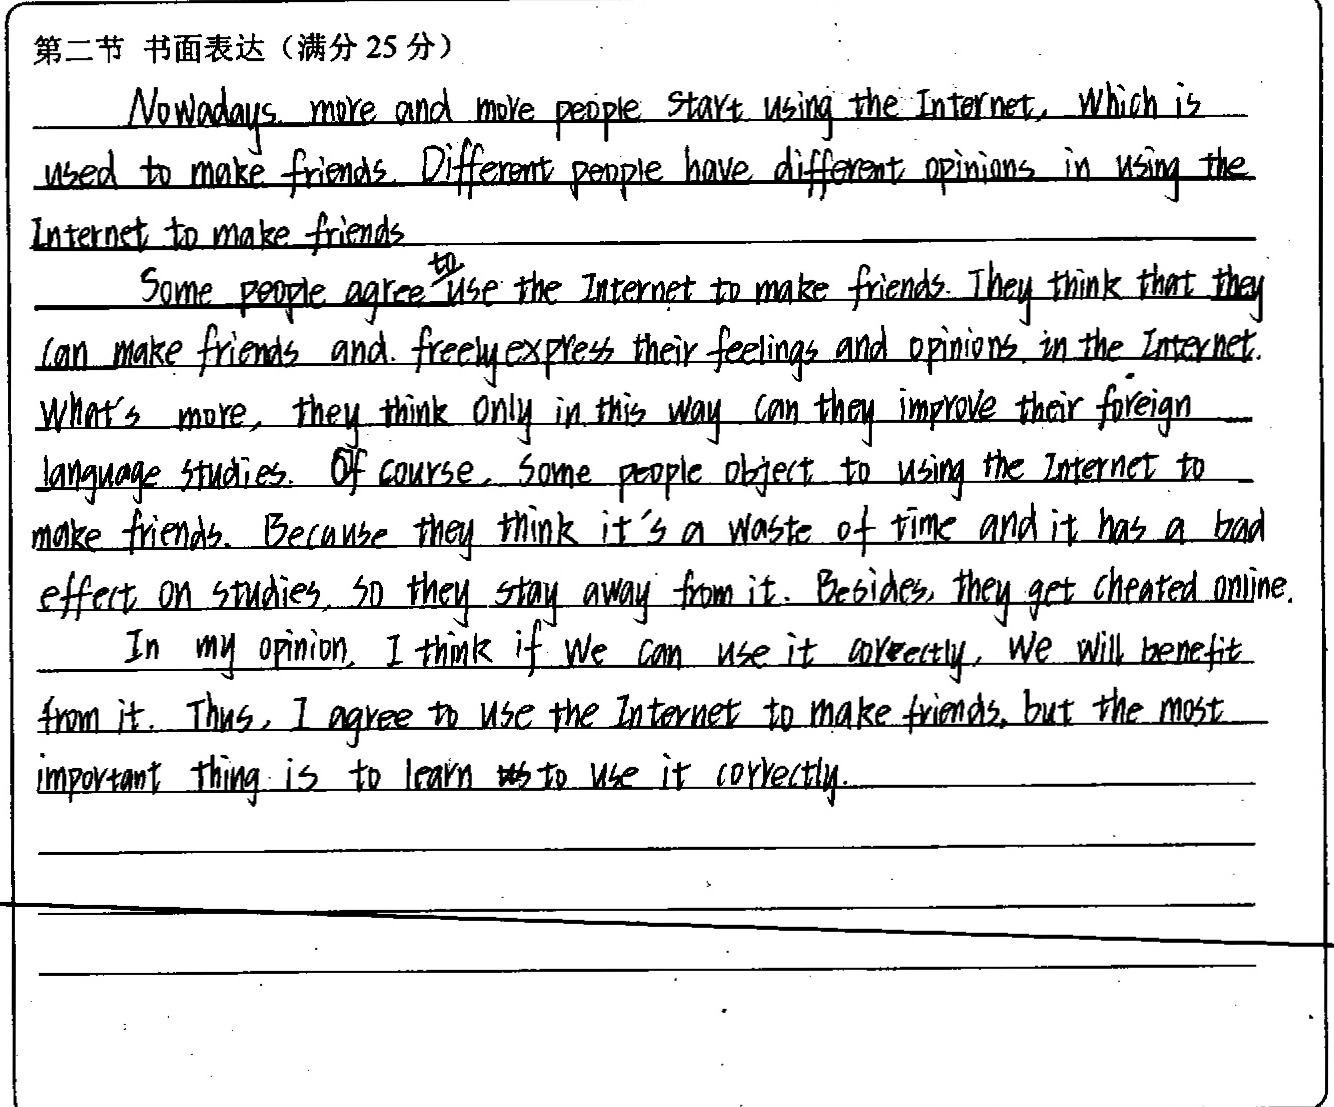 第二节 书面表达（满分 25 分）
Nowadays more and more people start using the Internet, which is
used to make friends. Different people have different opinions in using the
Internet to make friends
Some people agree to use the Internet to make friends. They think that they
can make friends and freely express their feelings and opinions in the Internet.
What's more, they think only in this way can they improve their foreign
language studies. Of course, some people object to using the Internet to
make friends. Because they think it's a waste of time and it has a bad
effect on studies, so they stay away from it. Besides, they get cheated online.
In my opinion, I think if we can use it correctly, we will benefit
from it. Thus, I agree to use the Internet to make friends, but the most
important thing is to learn to use it correctly.